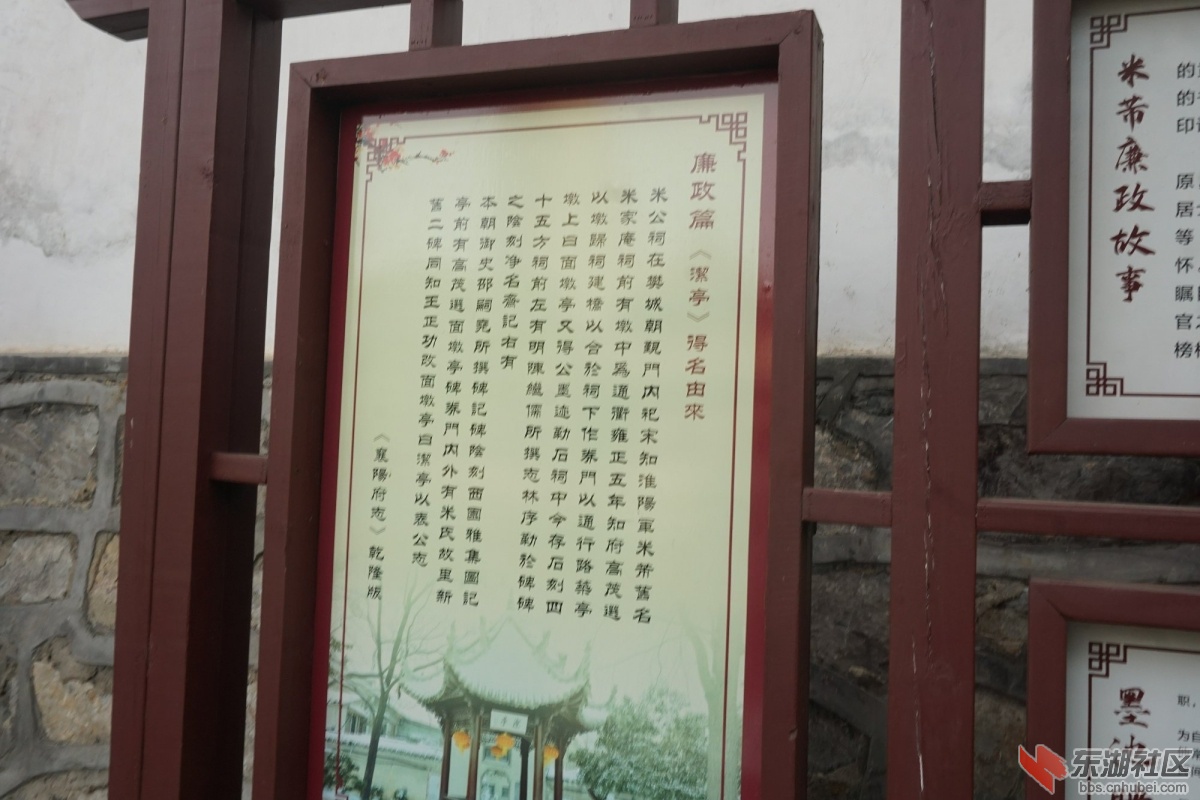 廉政篇《潔亭》得名由來
米公祠在樊城朝覲門内祀宋知淮陽軍米芾舊名
米家庵祠前有墩中爲通衢雍正五年知府高茂選
以墩歸祠建橋以合於祠下作券門以通行路築亭
墩上曰面墩亭又得公墨迹勒石祠中今存石刻四
十五方祠前左有明陳繼儒所撰志林序勒於碑碑
之陰刻净名齋記右有
本朝御史邵嗣堯所撰碑記碑陰刻西園雅集圖記
亭前有高茂選面墩亭碑券門内外有米氏故里新
舊二碑同知王正功改面墩亭曰潔亭以表公志
《襄陽府志》乾隆版
米芾廉政故事
的
的
印
原
居
等
怀
瞩
官
榜
墨
职，
为自
东湖社区
bbs.cnhubei.com